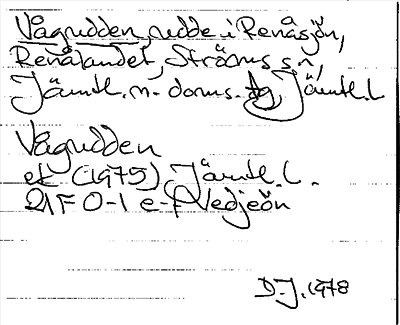 Vågudden, udde i Renåsjön,
Renålandet, Ströms sn,
Jämtl. n. doms. tg, Jämtl. l
Vågudden
ek (1975), Jämtl. l.
21F 0-1 e-f Vedjeön
D.J. 1978